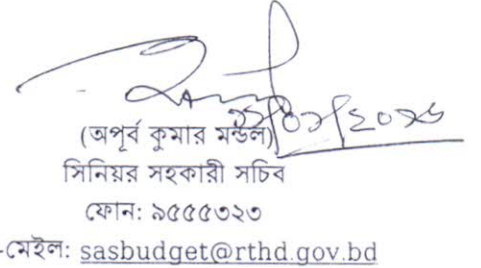 (অপূর্ব কুমার মন্ডল)
সিনিয়র সহকারী সচিব
ফোন: ৯৫৫৫৩২৩
-মেইল: sasbudget@rthd.gov.bd